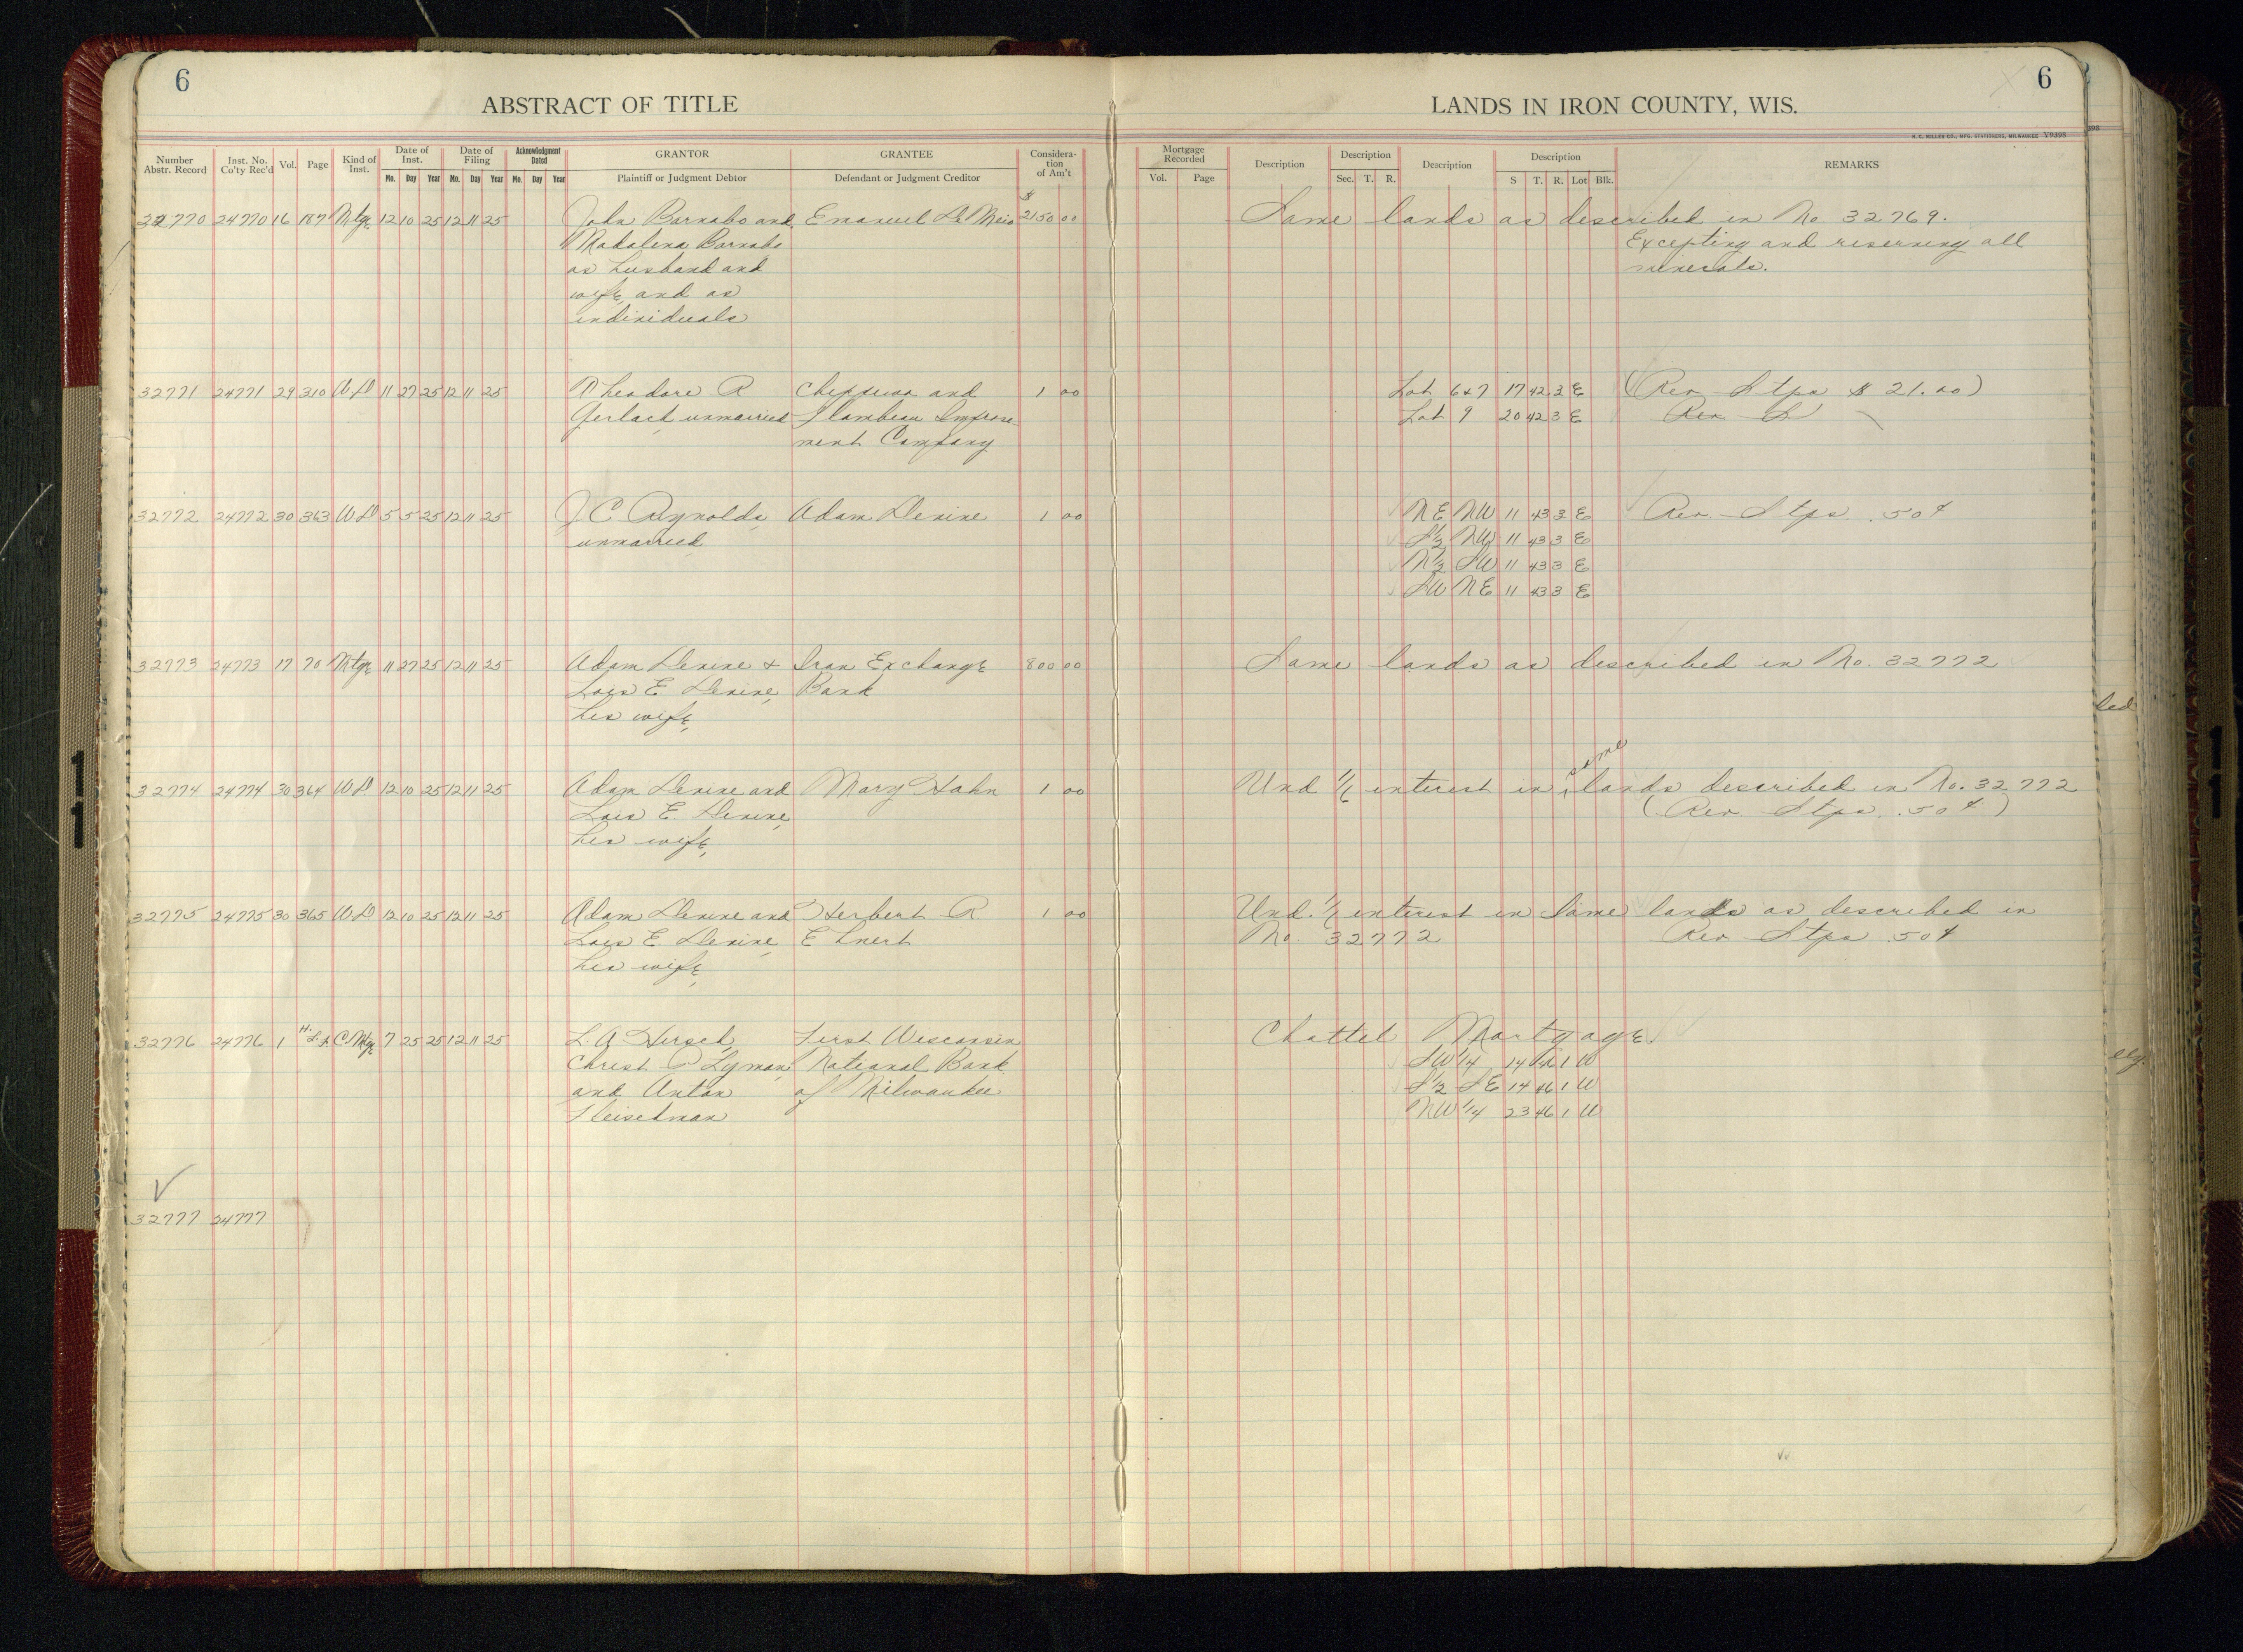 6
6
ABSTRACT OF TITLE
LANDS IN IRON COUNTY, WIS.
H. C. MILLER CO., MFG. STATIONERS, MILWAUKEE V9398
398
Number Abstr. Record
Inst. No. Co'ty Rec'd
Vol.
Page
Kind of Inst.
Date of Inst.
Date of Filing
Acknowledgment Dated
GRANTOR
GRANTEE
Considera-tion of Am't
Mortgage Recorded
Description
Description
Description
Description
REMARKS
Mo. Day Year Mo. Day Year Mo. Day Year
Plaintiff or Judgment Debtor
Defendant or Judgment Creditor
Vol. Page
Sec. T. R.
S T. R. Lot Blk.
32770 24770 16 187 Mtge 12 10 25 12 11 25 John Barnabo and Emanuel De Meio $2150 00 Same lands as described in No 32769.
Madalena Barnabo Excepting and reserving all
as husband and minerals.
wife, and as
individuals
32771 24771 29 310 W D 11 27 25 12 11 25 Theodore R Chippewa and 1 00 Lot 6+7 17 42 3 E (Rev Stps $ 21.00)
Gerlach unmarried Flambeau Improve- Lot 9 20 42 3 E Rev S
ment Company
32772 24772 30 363 W D 5 5 25 12 11 25 J C Reynolds, Adam Devine 1 00 N E NW 11 43 3 E Rev Stps .50¢
unmarried S½ NW 11 43 3 E
N½ SW 11 43 3 E
SW NE 11 43 3 E
32773 24773 17 70 Mtge 11 27 25 12 11 25 Adam Devine + Iron Exchange 800 00 Same lands as described in No. 32772
Lois E. Devine, Bank
his wife,
led
same
32774 24774 30 364 W D 12 10 25 12 11 25 Adam Devine and Mary Hahn 1 00 Und 1/6 interest in lands described in No. 32772
Lois E. Devine, (Rev Stps .50¢)
his wife,
32775 24775 30 365 W D 12 10 25 12 11 25 Adam Devine and Herbert R 1 00 Und. 1/6 interest in same lands as described in
Lois E. Devine, Ehnert No. 32772 Rev Stps .50¢
his wife,
32776 24776 1 H. L.L C Mtge 7 25 25 12 11 25 L. A. Hirsch, First Wisconsin Chattel Mortgage.
Christ P Lyman, National Bank SW ¼ 14 46 1 W
and Anton of Milwaukee S½ SE 14 46 1 W
Fleischman NW ¼ 23 46 1 W
32777 24777